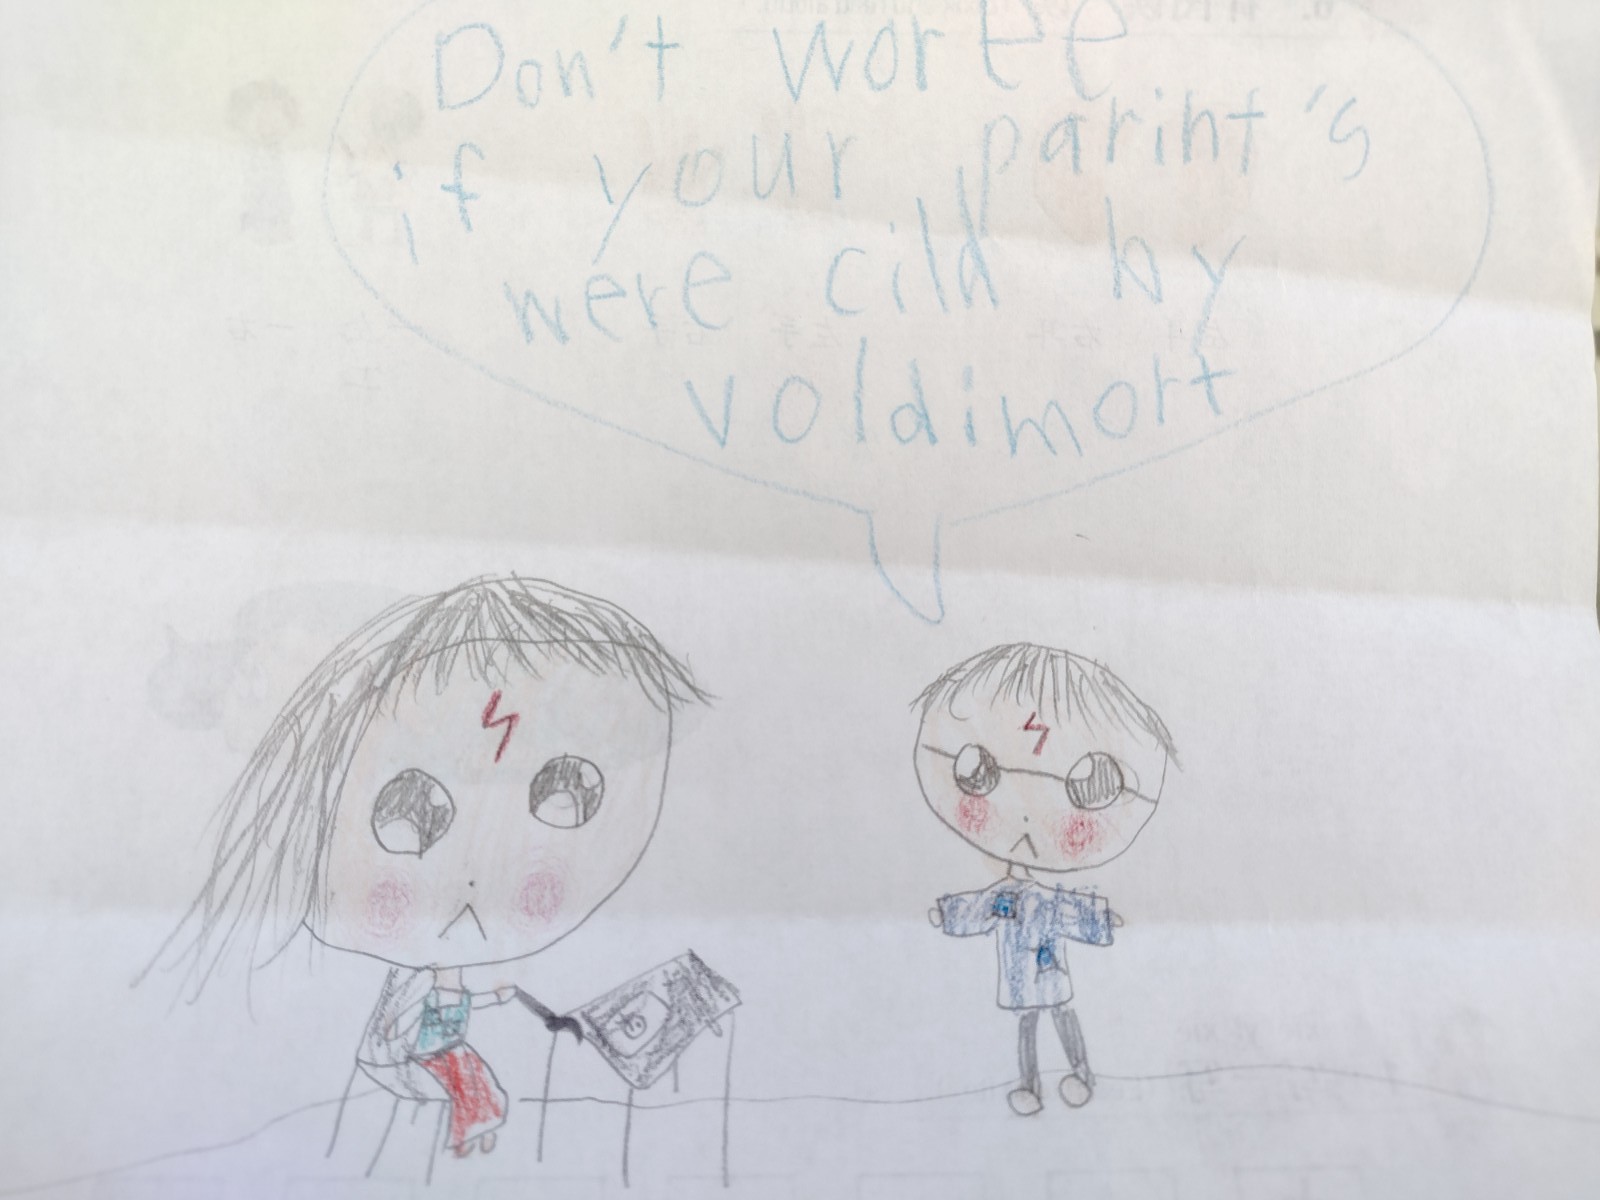 Don't woree
if your parint's
were cild by
voldimort